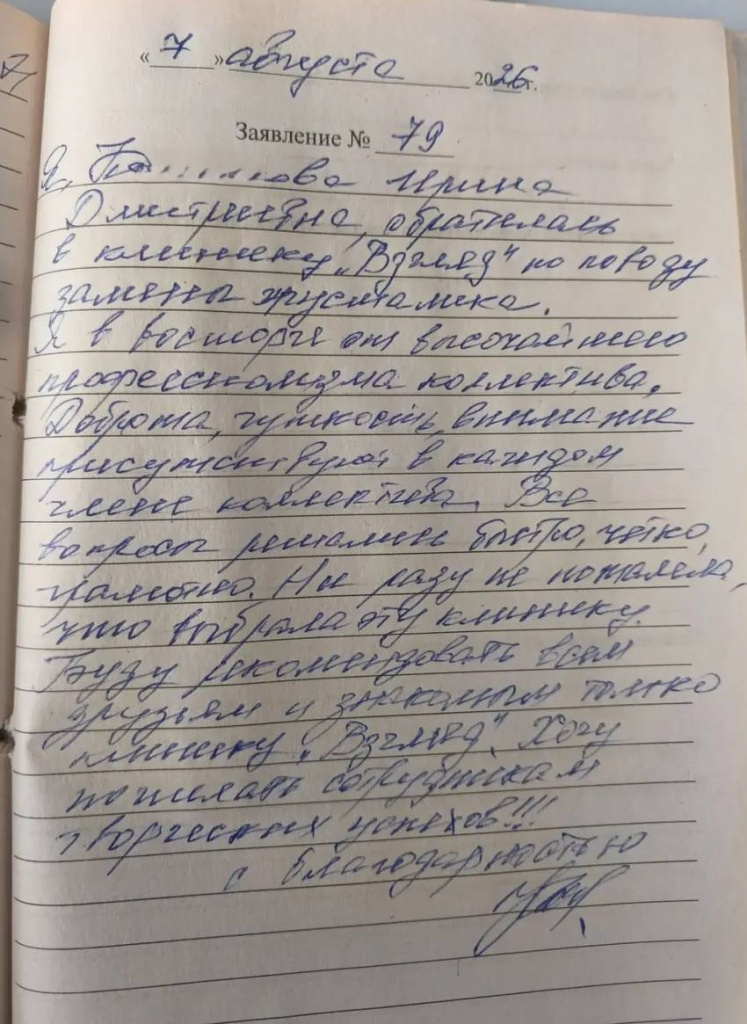 « 7 » августа 2026 г.
Заявление № 79
Я, Ирина
Дмитриевна, обратилась
в клинику „Взгляд" по поводу
замены хрусталика.
Я в восторге от высочайшего
профессионализма коллектива.
Доброта, чуткость, внимание
присутствуют в каждом
члене коллектива. Все
вопросы решались быстро, четко,
грамотно. Ни разу не пожалела,
что выбрала эту клинику.
Буду рекомендовать всем
друзьям и знакомым только
клинику „Взгляд". Хочу
пожелать сотрудникам
творческих успехов!!!
с благодарностью